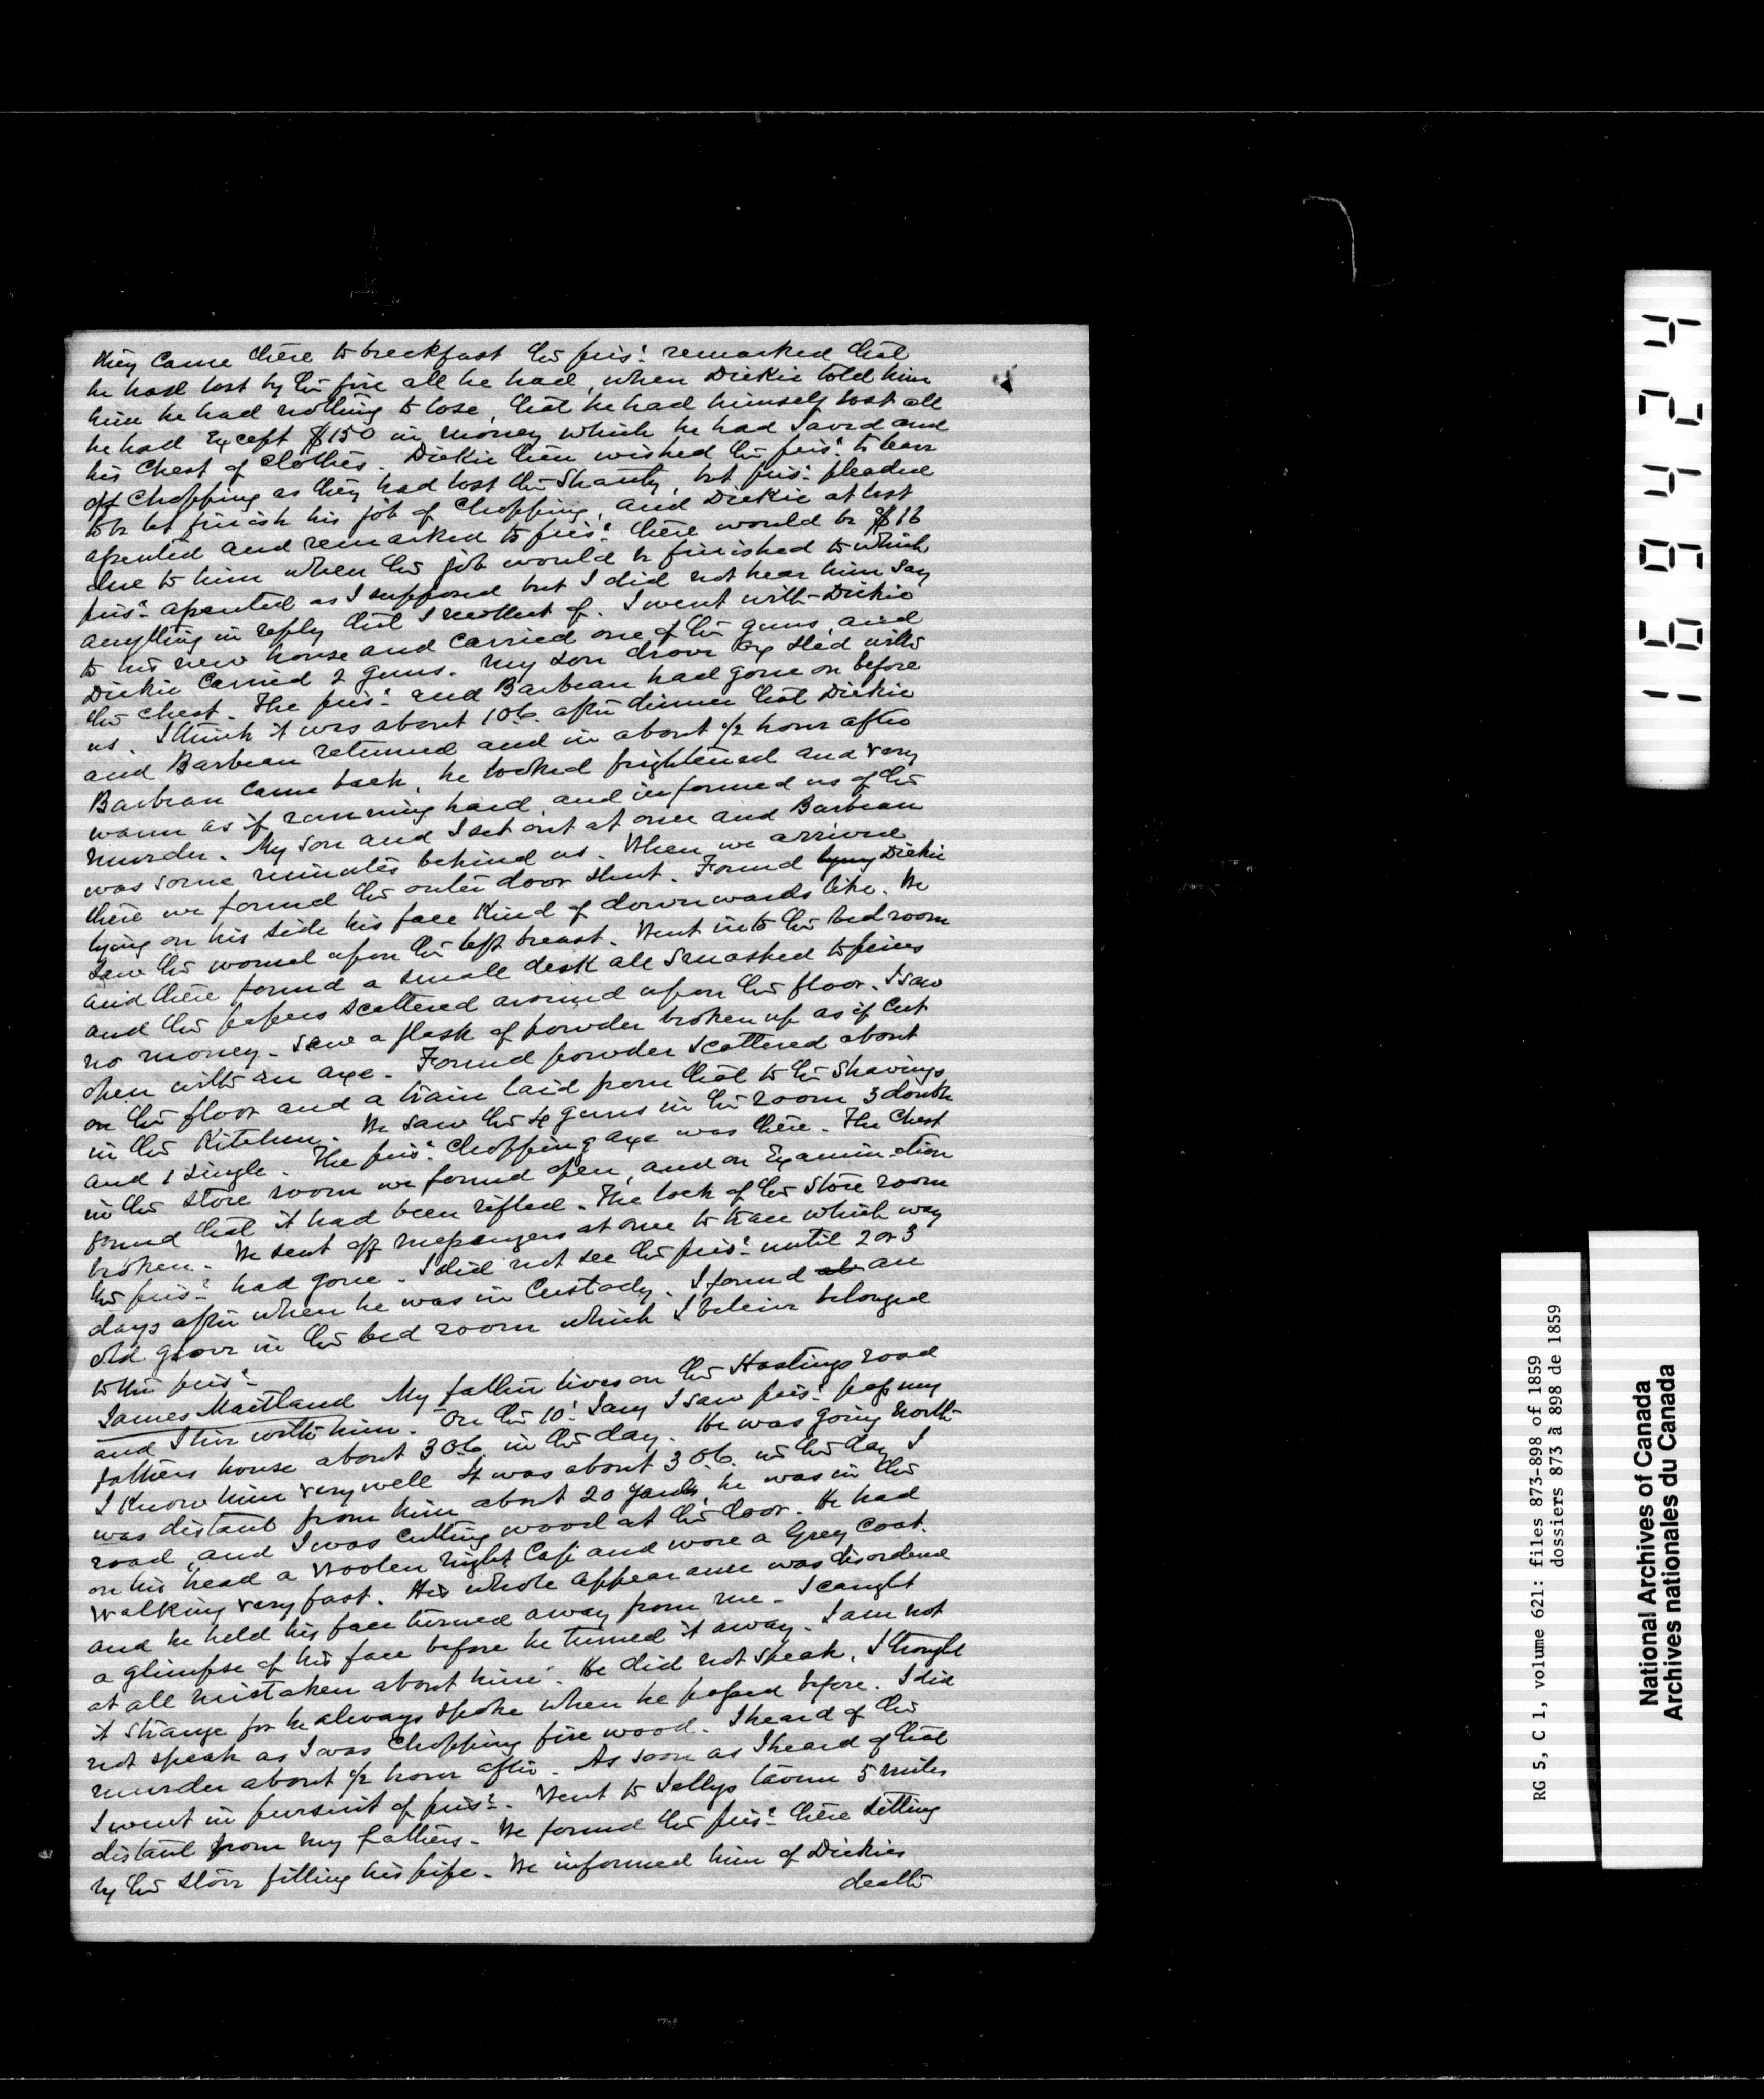 they came there to breckfast the pris: remarked that
he had lost by the fire all he had, when Dickie told him
him he had nothing to lose, that he had himself lost all
he had Except $150 in money which he had saved and
his chest of clothes. Dickie then wished the pris: to leave
off chopping as they had lost the Shanty, but pris: pleaded
to be let finish his job of chopping, and Dickie at last
assented and remarked to pris: there would be $16
due to him when the job would be finished to which
pris: assented as I supposed but I did not hear him say
anything in reply that I recollect of. I went with Dickie
to his new house and carried one of the guns, and
Dickie carried 2 guns. My son drove Ox sled with
the chest. The pris: and Barbeau had gone on before
us. I think it was about 1 O.C. after dinner that Dickie
and Barbeau returned and in about ½ hour after
Barbeau came back, he looked frightened and very
warm as if running hard, and informed us of the
murder. My son and I set out at once and Barbeau
was some minutes behind us. When we arrived
there we found the outer door shut. Found Dickie
lying on his side his face kind of downwards like. We
saw the wound upon the left breast. Went into the bed room
and there found a small desk all smashed to peices
and the papers scattered around upon the floor. I saw
no money. Saw a flask of powder broken up as if cut
open with an axe. Found powder scattered about
on the floor and a train laid from that to the shavings
in the Kitchen. We saw the 4 guns in the room 3 double
and 1 single. The pris: chopping axe was there. The chest
in the store room we found open, and on Examination
found that it had been rifled. The lock of the store room
broken. We sent off messengers at once to trace which way
the pris: had gone. I did not see the pris: until 2 or 3
days after when he was in Custody. I found an
old glove in the bed room which I beleive belonged
to the pris:
James Maitland My father lives on the Hastings road
and I live with him. On the 10: Jany I saw pris: pass my
fathers house about 3 O.C. in the day. He was going North
I know him very well It was about 3 O.C. in the day I
was distant from him about 20 yards, he was in the
road, and I was cutting wood at the door. He had
on his head a woolen night Cap and wore a Grey Coat.
Walking very fast. His whole appearance was disordered
and he held his face turned away from me. I caught
a glimpse of his face before he turned it away. I am not
at all mistaken about him. He did not speak. I thought
it strange for he always spoke when he passed before. I did
not speak as I was chopping fire wood. I heard of the
murder about ½ hour after. As soon as I heard of that
I went in pursuit of pris:. Went to Jellys tavern 5 miles
distant from my fathers. We found the pris: there sitting
by the stove filling his pipe. We informed him of Dickies
death
169424
RG 5, C 1, volume 621: files 873-898 of 1859
dossiers 873 à 898 de 1859
National Archives of Canada
Archives nationales du Canada